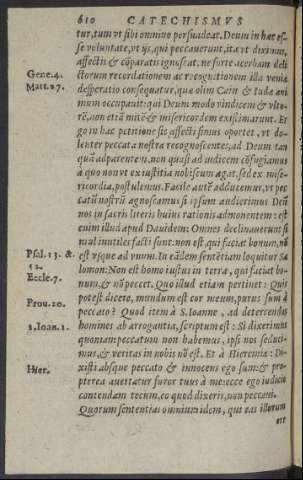 610 CATECHISMVS
tur, tum vt sibi omnino persuadeat, Deum in hac es-
se voluntate, vt ijs, qui peccauerunt, ita vt diximus,
affectis & cõparatis ignoscat, ne forte acerbam deli
Gene.4. ctorum recordationem ac recognitionem illa veniæ
Matt.27. desperatio consequatur, quæ olim Cain & Iudæ ani
mum occupauit: qui Deum modo vindicem & vlto-
rẽ, non etiã mitẽ & misericordem existimarunt. Er
go in hac petitione sic affecti simus oportet, vt do-
lenter peccata nostra recognoscentes, ad Deum tan
quã ad parentem, non quasi ad iudicem cõfugiamus
à quo non vt ex iustitia nobiscum agat, sed ex mise-
ricordia, postulemus. Facile autẽ adducemur, vt pec
catũ nostrũ agnoscamus si ipsum audierimus Deũ
nos in sacris literis huius rationis admonentem: est
enim illud apud Dauidem: Omnes declinauerunt si
mul inutiles facti sunt: non est qui faciat bonum, nõ
Psal.13. & est vsque ad vnum. In eãdem sententiam loquitur Sa
52. lomon: Non est homo iustus in terra, qui faciat bo-
Eccle.7. num, & nõ peccet. Quo illud etiam pertinet: Quis
Prou.20. potest dicere, mundum est cor meum, purus sum à
peccato? Quod item à S. Ioanne, ad deterrendos
1.Ioan.1. homines ab arrogantia, scriptum est: Si dixerimus
quoniam peccatum non habemus, ipsi nos seduci-
mus, & veritas in nobis nõ est. Et à Hieremia: Di-
Hier. xisti absque peccato & innocens ego sum: & pro-
pterea auertatur furor tuus à me: ecce ego iudicio
contendam tecum, eo quod dixeris, non peccaui.
Quorum sententias omnium idem, qui eas illorum
ore